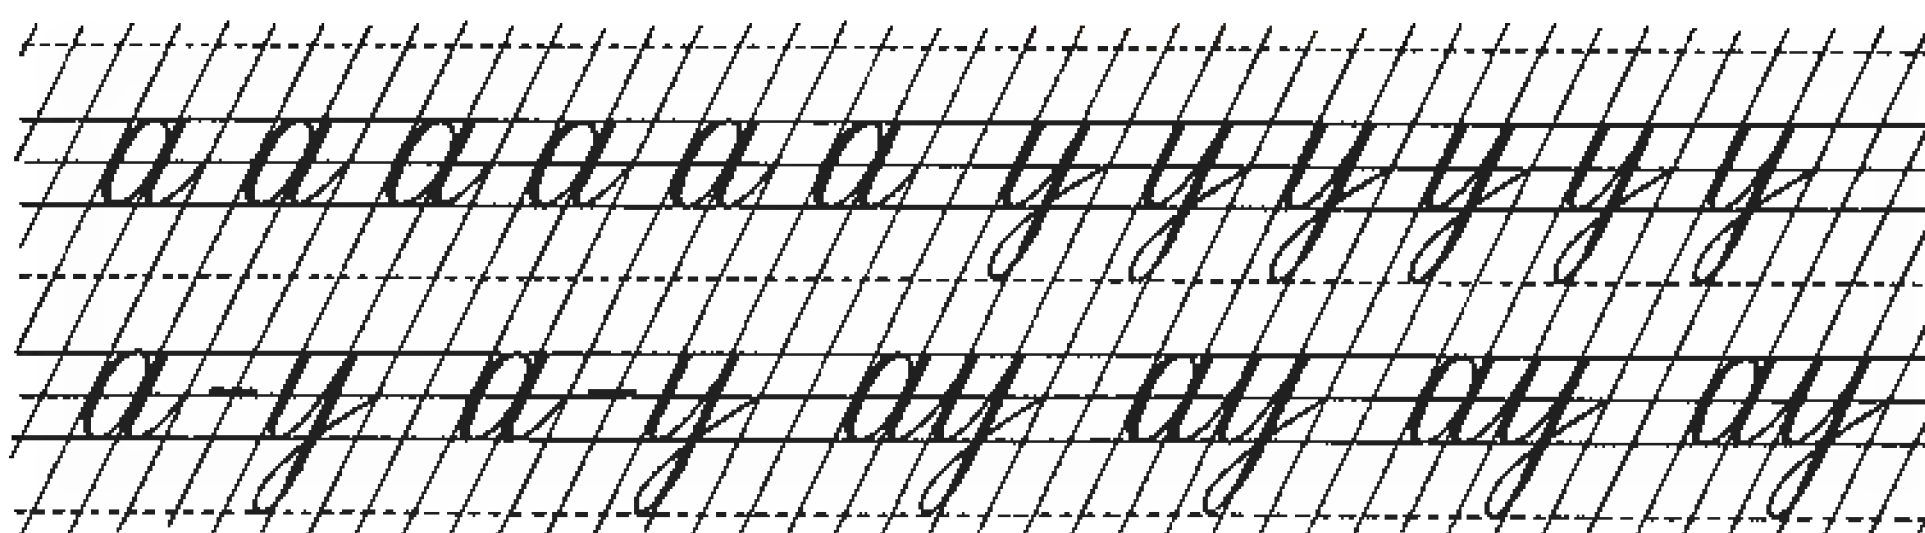 а а а а а а у у у у у у
а - у а - у ау ау ау ау